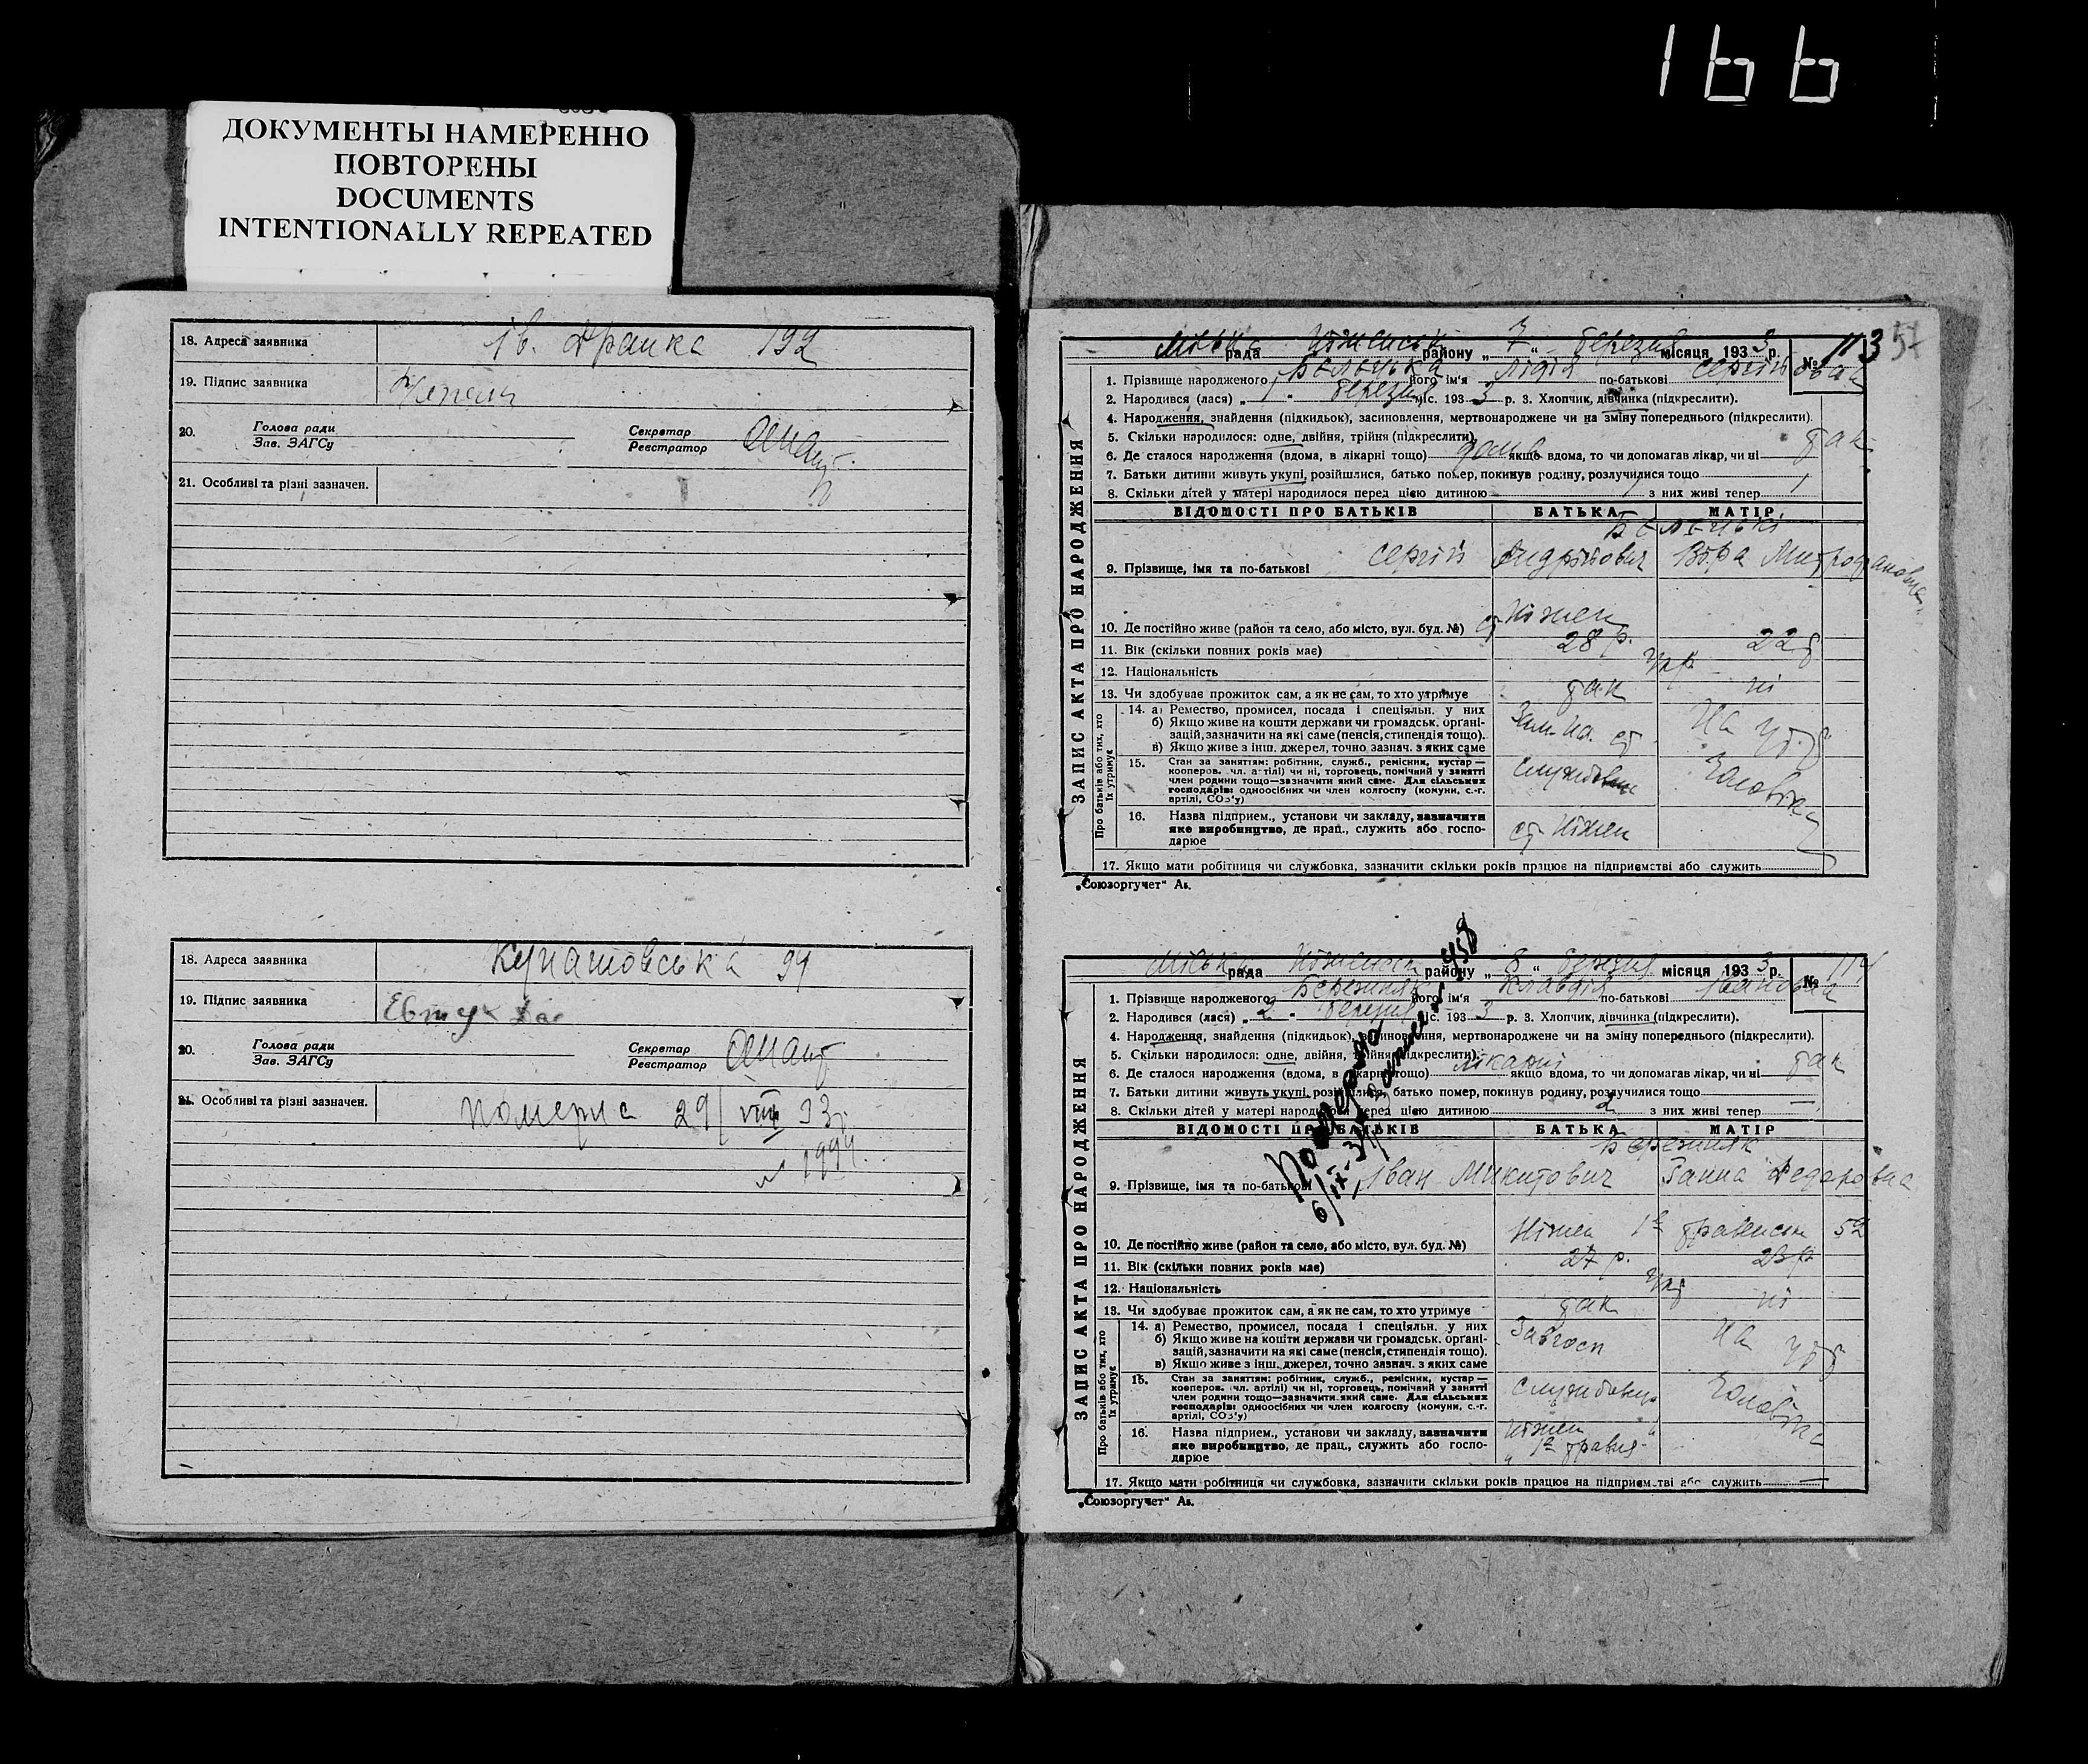 166
ДОКУМЕНТЫ НАМЕРЕННО
ПОВТОРЕНЫ
DOCUMENTS
INTENTIONALLY REPEATED
18. Адреса заявника Ів. Франка 192
19. Підпис заявника
20. Голова ради Секретар
Зав. ЗАГСу Реєстратор
21. Особливі та різні зазначен.
18. Адреса заявника Кунашовська 94
19. Підпис заявника
20. Голова ради Секретар
Зав. ЗАГСу Реєстратор
21. Особливі та різні зазначен. померла 29/VIII 33р.
57
Міська рада Ніженськ району „7“ березня місяця 1933 р. № 113
ЗАПИС АКТА ПРО НАРОДЖЕННЯ
1. Прізвище народженого Белецька його ім'я Лідія по-батькові Сергійовна
2. Народився (лася) „1“ березня міс. 1933 р. 3. Хлопчик, дівчинка (підкреслити).
4. Народження, знайдення (підкидьок), засиновлення, мертвонароджене чи на зміну попереднього (підкреслити).
5. Скільки народилося: одне, двійня, трійня (підкреслити)
6. Де сталося народження (вдома, в лікарні тощо) дома якщо вдома, то чи допомагав лікар, чи ні так
7. Батьки дитини живуть укупі, розійшлися, батько помер, покинув родину, розлучилися тощо
8. Скільки дітей у матері народилося перед цією дитиною 1 з них живі тепер 1
ВІДОМОСТІ ПРО БАТЬКІВ БАТЬКА МАТІР
Белецькі
9. Прізвище, імя та по-батькові Сергій Андрійович Віра Митрофановна
10. Де постійно живе (район та село, або місто, вул. буд. №) ст Ніжен
11. Вік (скільки повних років має) 28 р. 22 р
12. Національність укр
13. Чи здобуває прожиток сам, а як не сам, то хто утримує так ні
Про батьків або тих, хто їх утримує
14. а) Ремество, промисел, посада і спеціяльн. у них
б) Якщо живе на кошти держави чи громадськ. органі-
зацій, зазначити на які саме (пенсія, стипендія тощо).
в) Якщо живе з інш. джерел, точно зазнач. з яких саме
Зам. на. ст. На ут.
15. Стан за заняттям: робітник, служб., ремісник, кустар —
кооперов. (чл. артілі) чи ні, торговець, помічний у занятті
член родини тощо—зазначити який саме. Для сільських
господарів: одноосібних чи член колгоспу (комуни, с.-г.
артілі, СОЗ'у)
Службовець Чоловіка
16. Назва підприєм., установи чи закладу, зазначити
яке виробництво, де прац., служить або госпо-
дарює
ст Ніжен
17. Якщо мати робітниця чи службовка, зазначити скільки років працює на підприємстві або служить
„Союзоргучет“ Ав.
Міська рада Ніженськ району „8“ березня місяця 1933 р. № 114
ЗАПИС АКТА ПРО НАРОДЖЕННЯ
1. Прізвище народженого Березняк його ім'я Клавдія по-батькові Івановна
2. Народився (лася) „2“ березня міс. 1933 р. 3. Хлопчик, дівчинка (підкреслити).
4. Народження, знайдення (підкидьок), засиновлення, мертвонароджене чи на зміну попереднього (підкреслити).
5. Скільки народилося: одне, двійня, трійня (підкреслити)
6. Де сталося народження (вдома, в лікарні тощо) лікарні якщо вдома, то чи допомагав лікар, чи ні так
7. Батьки дитини живуть укупі, розійшлися, батько помер, покинув родину, розлучилися тощо
8. Скільки дітей у матері народилося перед цією дитиною 2 з них живі тепер
ВІДОМОСТІ ПРО БАТЬКІВ БАТЬКА МАТІР
Березняк
9. Прізвище, імя та по-батькові Іван Микитович Ганна Федоровна
10. Де постійно живе (район та село, або місто, вул. буд. №) Ніжен 1е травенськ 52
11. Вік (скільки повних років має) 27 р. 23 р
12. Національність укр
13. Чи здобуває прожиток сам, а як не сам, то хто утримує так ні
Про батьків або тих, хто їх утримує
14. а) Ремество, промисел, посада і спеціяльн. у них
б) Якщо живе на кошти держави чи громадськ. органі-
зацій, зазначити на які саме (пенсія, стипендія тощо).
в) Якщо живе з інш. джерел, точно зазнач. з яких саме
Завгосп на ут
15. Стан за заняттям: робітник, служб., ремісник, кустар —
кооперов. (чл. артілі) чи ні, торговець, помічний у занятті
член родини тощо—зазначити який саме. Для сільських
господарів: одноосібних чи член колгоспу (комуни, с.-г.
артілі, СОЗ'у)
Службовець Чоловіка
16. Назва підприєм., установи чи закладу, зазначити
яке виробництво, де прац., служить або госпо-
дарює
Ніжен
17. Якщо мати робітниця чи службовка, зазначити скільки років працює на підприємстві або служить
„Союзоргучет“ Ав.